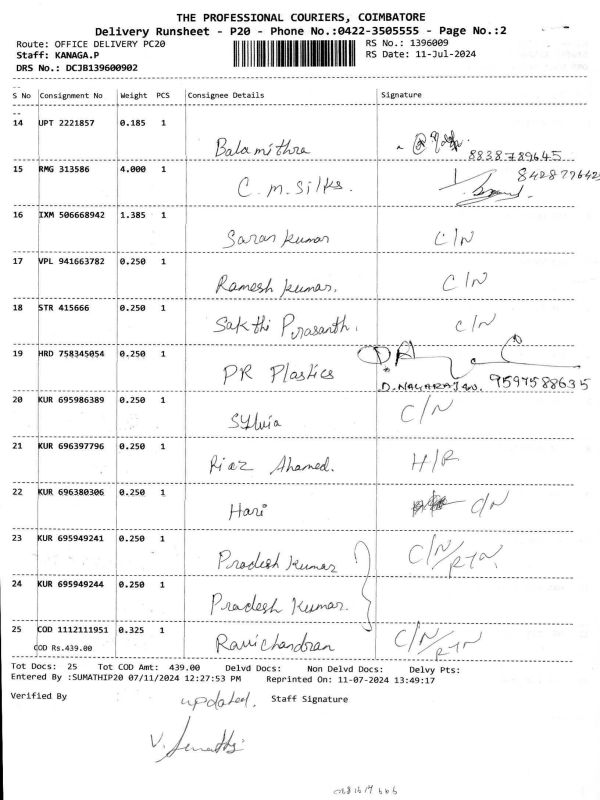 THE PROFESSIONAL COURIERS, COIMBATORE
Delivery Runsheet - P20 - Phone No.:0422-3505555 - Page No.:2
Route: OFFICE DELIVERY PC20 RS No.: 1396009
Staff: KANAGA.P RS Date: 11-Jul-2024
DRS No.: DCJB139600902
S No Consignment No Weight PCS Consignee Details Signature
14 UPT 2221857 0.185 1
Balamithra 8838789645
15 RMG 313586 4.000 1
C.M.Silks.
16 IXM 506668942 1.385 1
Saran Kumar C/N
17 VPL 941663782 0.250 1
Ramesh Kumar. C/N
18 STR 415666 0.250 1
Sakthi Prasanth. C/N
19 HRD 758345054 0.250 1
PR Plastics D.NAGARAJAN. 9597588635
20 KUR 695986389 0.250 1
Sylvia C/N
21 KUR 696397796 0.250 1
Riaz Ahamed. H/R
22 KUR 696380306 0.250 1
Hari C/N
23 KUR 695949241 0.250 1
Pradesh Kumar C/N/RTN
24 KUR 695949244 0.250 1
Pradesh Kumar.
25 COD 1112111951 0.325 1
COD Rs.439.00 Ravichandran C/N/RTN
Tot Docs: 25 Tot COD Amt: 439.00 Delvd Docs: Non Delvd Docs: Delvy Pts:
Entered By :SUMATHIP20 07/11/2024 12:27:53 PM Reprinted On: 11-07-2024 13:49:17
Verified By updated. Staff Signature
V. Sumathi